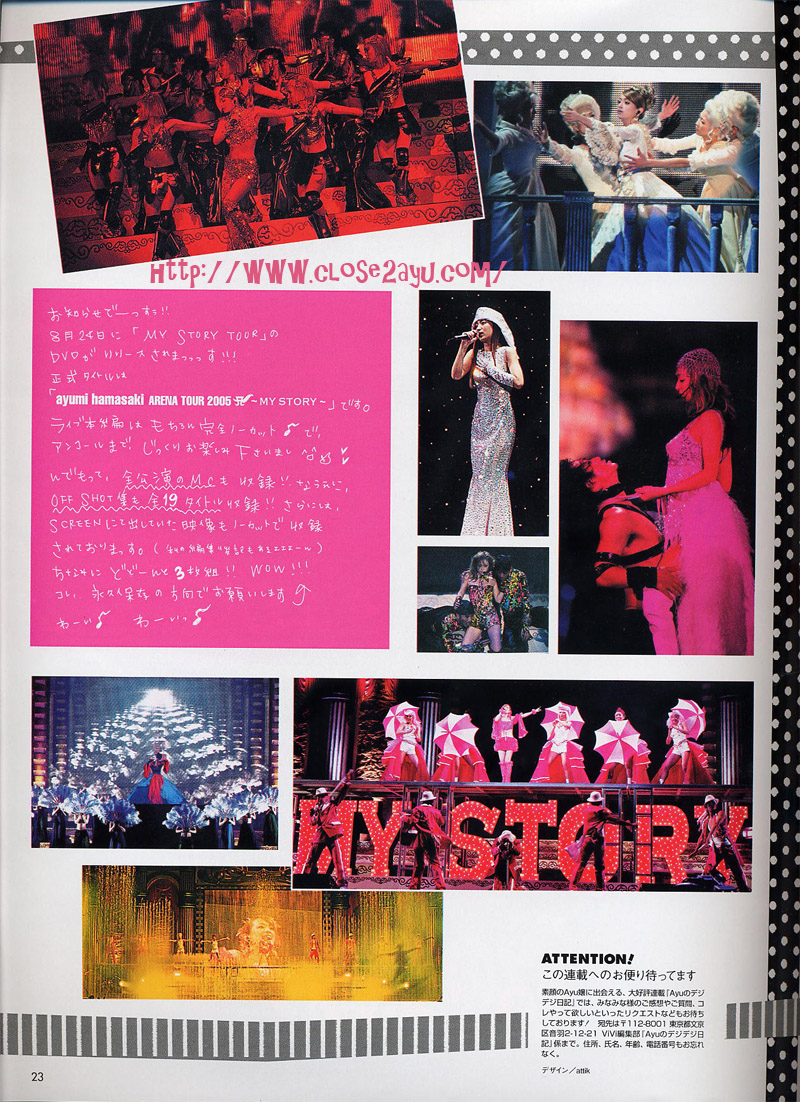 Http://WWW.close2ayu.com/
お知らせでーっすぅ!!
8月24日に「MY STORY TOUR」の
DVDがリリースされまっっす!!!
正式タイトルは
「ayumi hamasaki ARENA TOUR 2005 A ~MY STORY~」です。
ライブ本編はもちろん完全ノーカット♪で、
アンコールまでじっくりお楽しみ下さいまし
んでもって、全公演のMCも収録!! なうえに、
OFF SHOT集も全19タイトル収録!! さらには、
SCREENにて出していた映像もノーカットで収録
されておりまっす。(
ちなみにどどーんと3枚組!! WOW!!!
コレ、永久保存の方向でお願いします
わーい♪ わーいっ♪
MY STORY
ATTENTION!
この連載へのお便り待ってます
素顔のAyu嬢に出会える、大好評連載『Ayuのデジ
デジ日記』では、みなみな様のご感想やご質問、コ
レやって欲しいといったリクエストなどもお待ち
しております! 宛先は〒112-8001 東京都文京
区音羽2-12-21 ViVi編集部『Ayuのデジデジ日
記』係まで。住所、氏名、年齢、電話番号もお忘れ
なく。
デザイン/attik
23